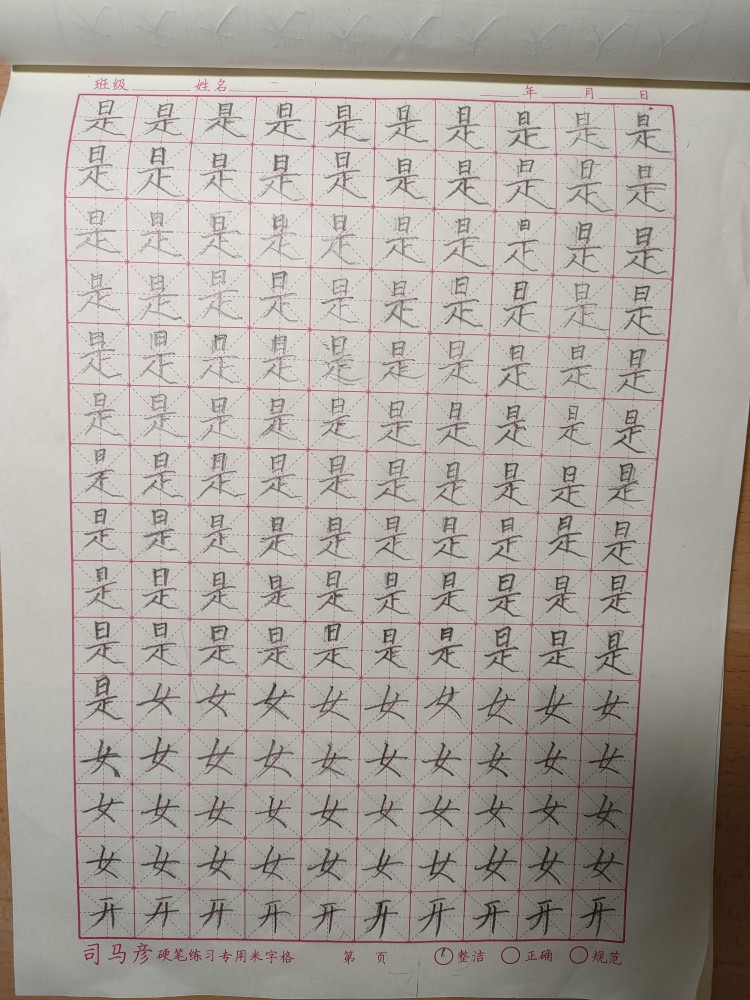 班级 姓名 年 月 日
是 是 是 是 是 是 是 是 是 是
是 是 是 是 是 是 是 是 是 是
是 是 是 是 是 是 是 是 是 是
是 是 是 是 是 是 是 是 是 是
是 是 是 是 是 是 是 是 是 是
是 是 是 是 是 是 是 是 是 是
是 是 是 是 是 是 是 是 是 是
是 是 是 是 是 是 是 是 是 是
是 是 是 是 是 是 是 是 是 是
是 是 是 是 是 是 是 是 是 是
是 女 女 女 女 女 女 女 女 女
女 女 女 女 女 女 女 女 女 女
女 女 女 女 女 女 女 女 女 女
女 女 女 女 女 女 女 女 女 女
开 开 开 开 开 开 开 开 开 开
司马彦 硬笔练习专用米字格 第 页 整洁 正确 规范